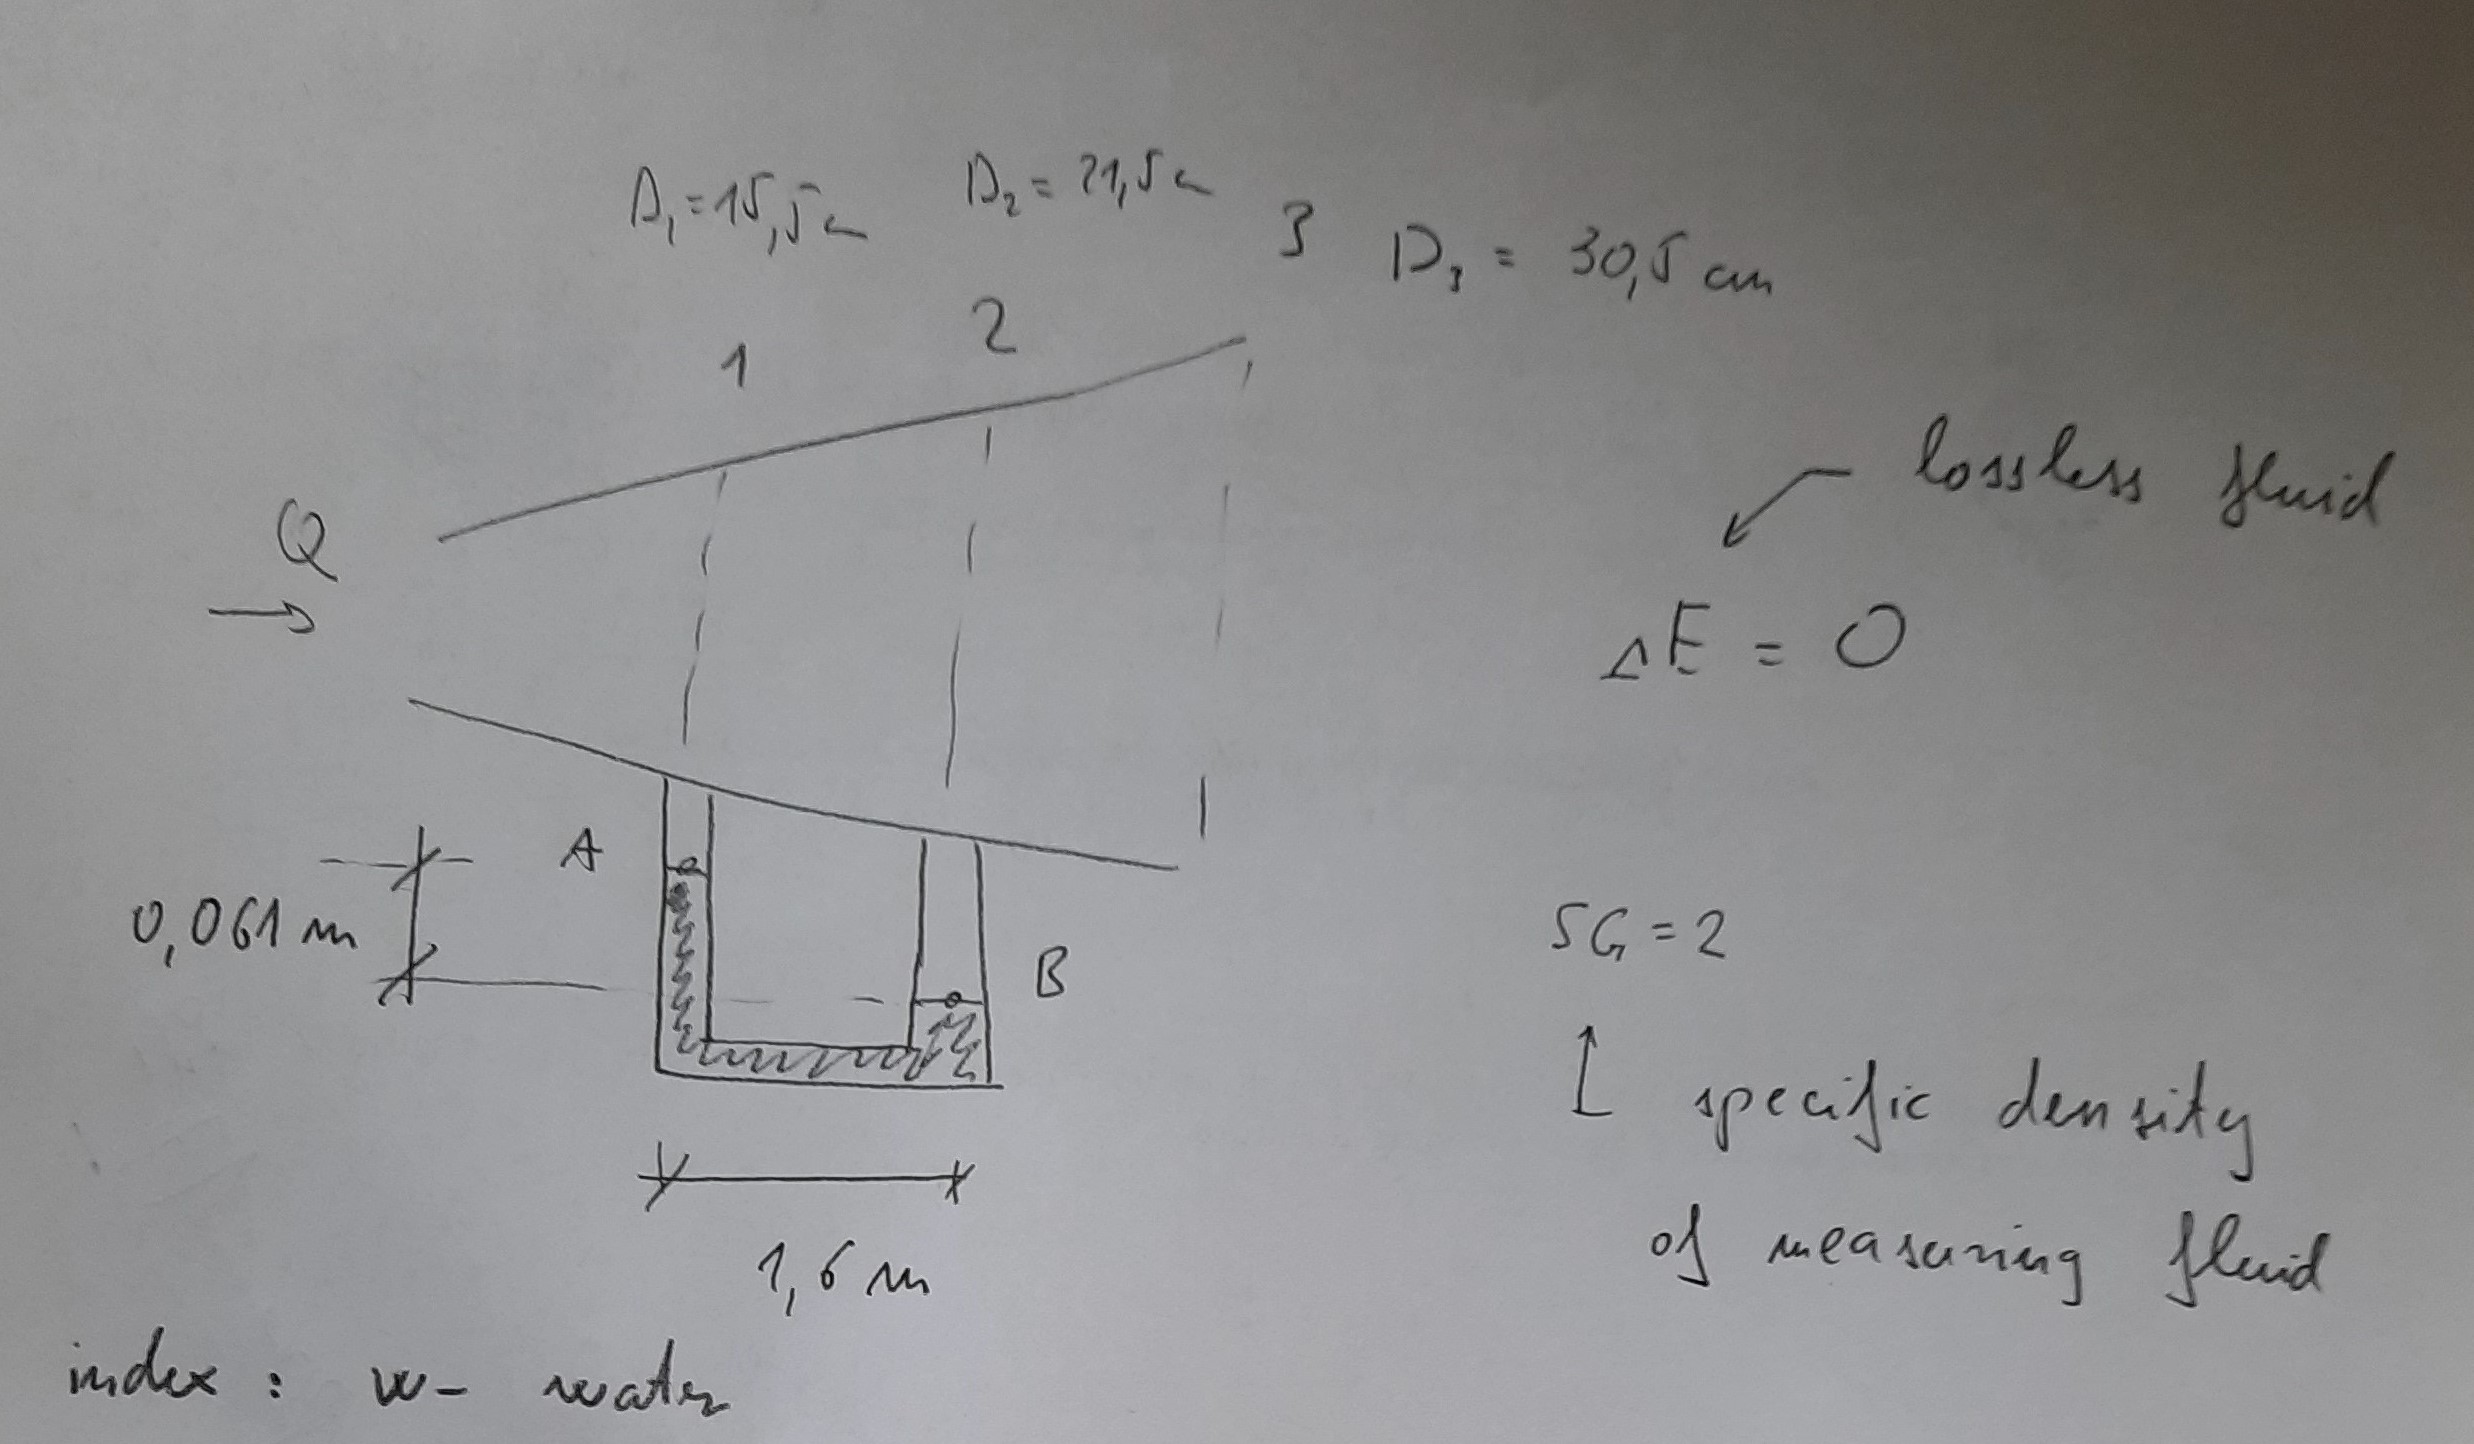 D₁=15,5c D₂ = 21,5c
3 D₃ = 30,5 cm
1 2
Q
lossless fluid
ΔE = 0
A
0,061 m
B
SG = 2
specific density
of measuring fluid
1,6 m
index : w- water